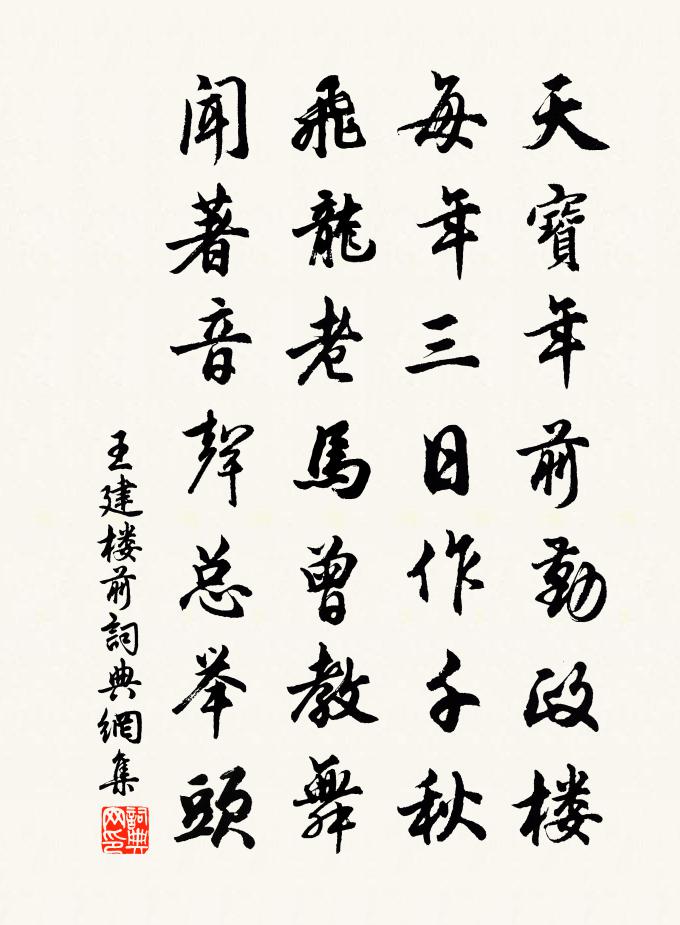 天寶年前勤政楼
每年三日作千秋
飛龍老馬曾教舞
聞著音聲总举頭
王建楼前詞典網集
詞典
网印